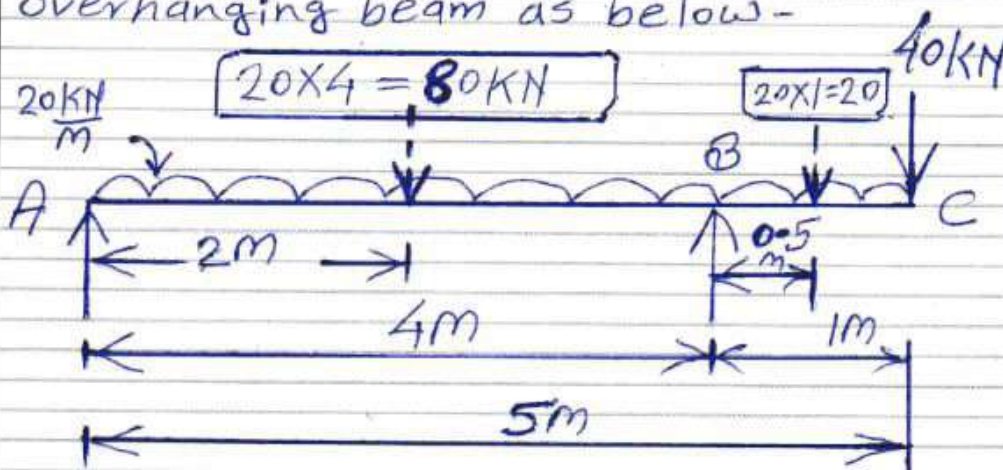 overhanging beam as below-
40KN
20X4 = 80KN
20X1=20
20KN
M
B
A
C
2M
0.5
m
4M
1M
5M